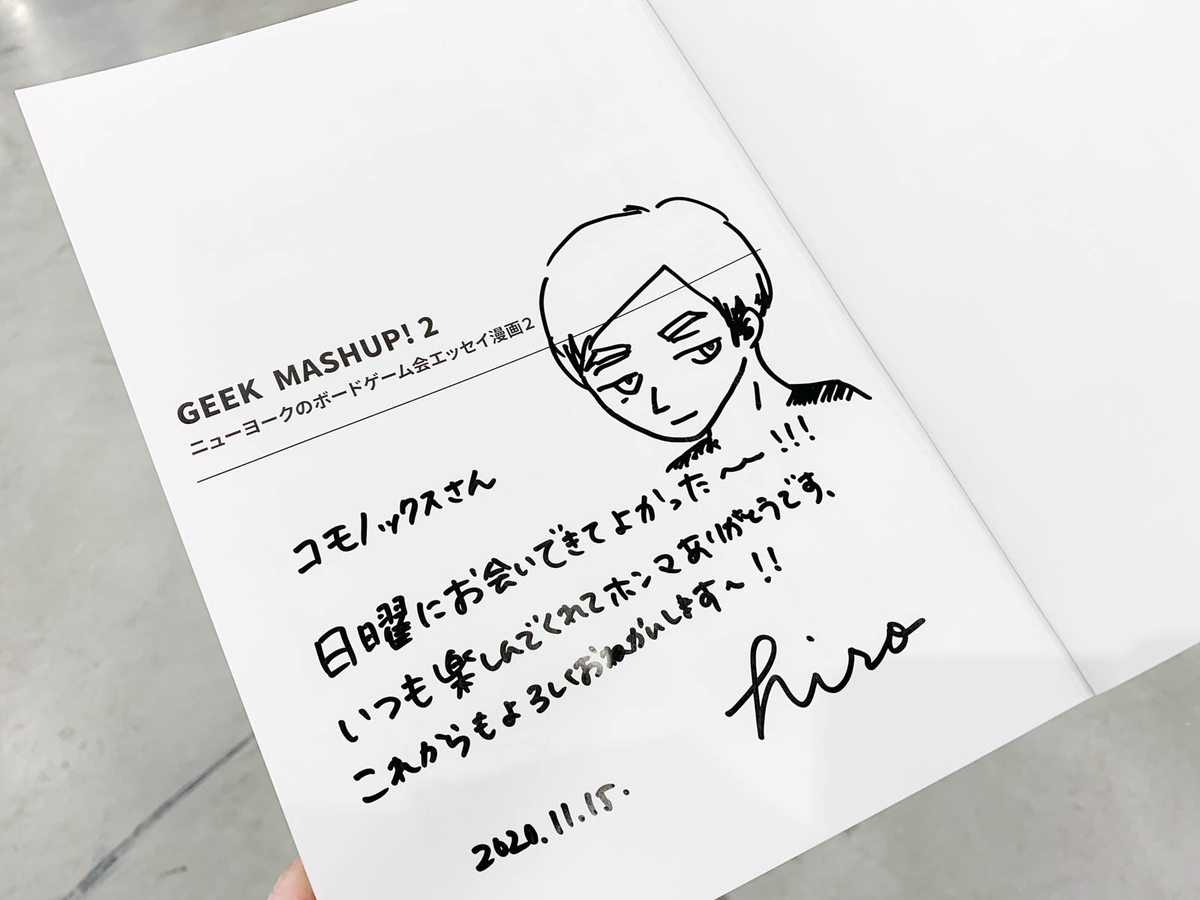 GEEK MASHUP! 2
ニューヨークのボードゲーム会エッセイ漫画2
コモノックスさん
日曜にお会いできてよかった〜!!!
いつも楽しんでくれてホンマありがとうです、
これからもよろしくおねがいします〜!!
hiro
2020.11.15.